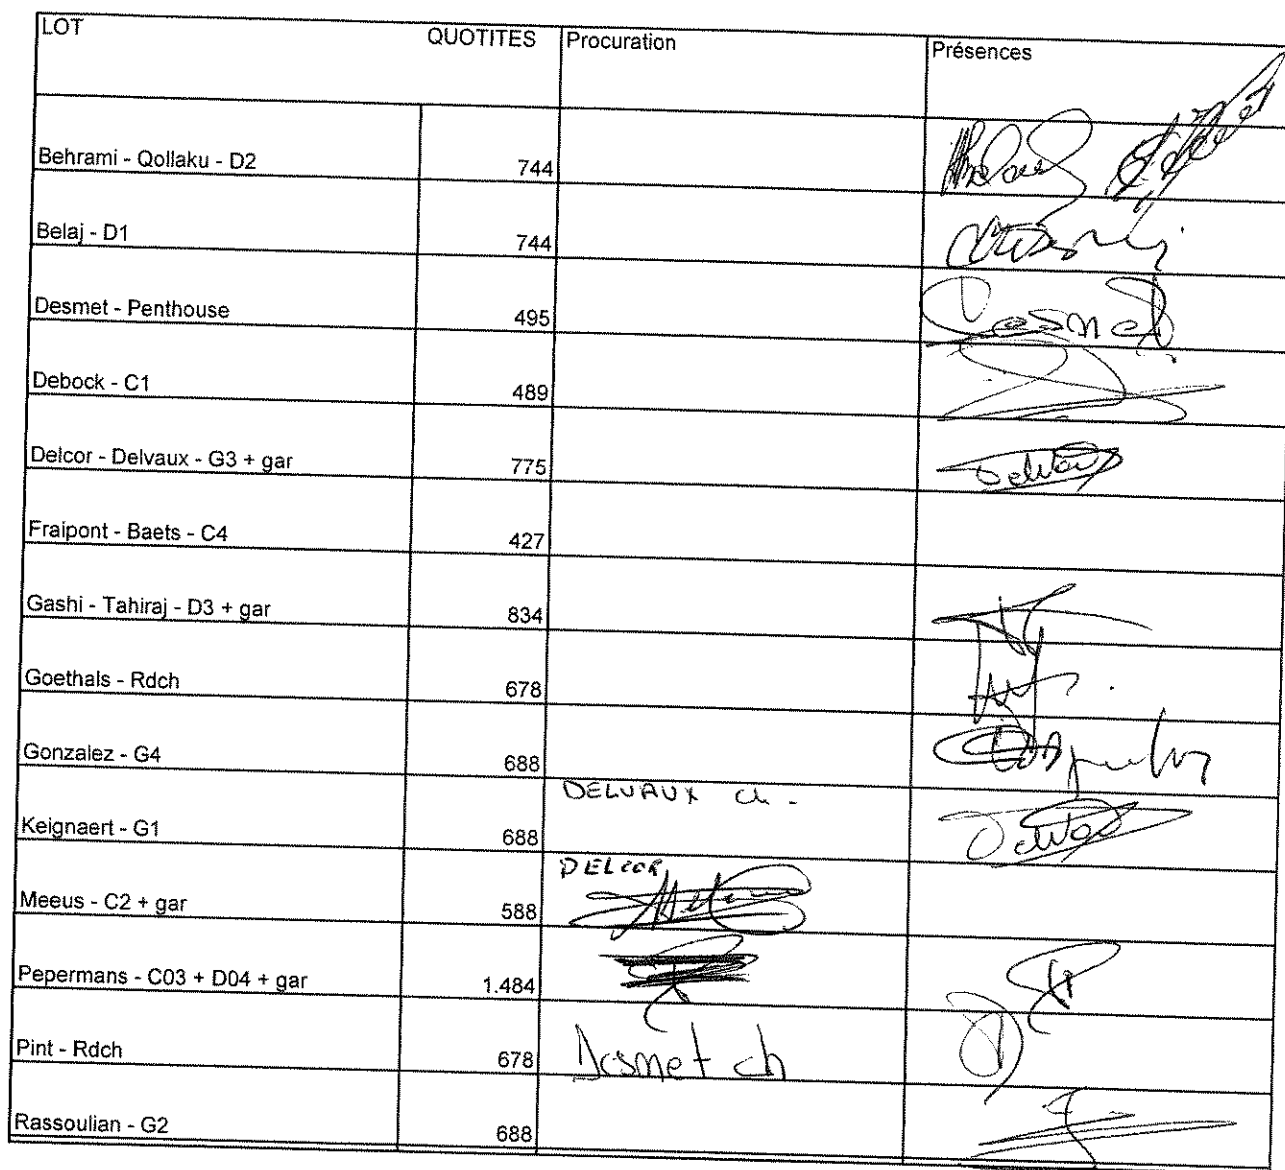 LOT QUOTITES Procuration Présences
Behrami - Qollaku - D2 744
Belaj - D1 744
Desmet - Penthouse 495 Desmet
Debock - C1 489
Delcor - Delvaux - G3 + gar 775 Delvaux
Fraipont - Baets - C4 427
Gashi - Tahiraj - D3 + gar 834
Goethals - Rdch 678
Gonzalez - G4 688
Keignaert - G1 688 DELVAUX Ch -
Meeus - C2 + gar 588 DELCOR
Pepermans - C03 + D04 + gar 1.484
Pint - Rdch 678 Desmet ch
Rassoulian - G2 688